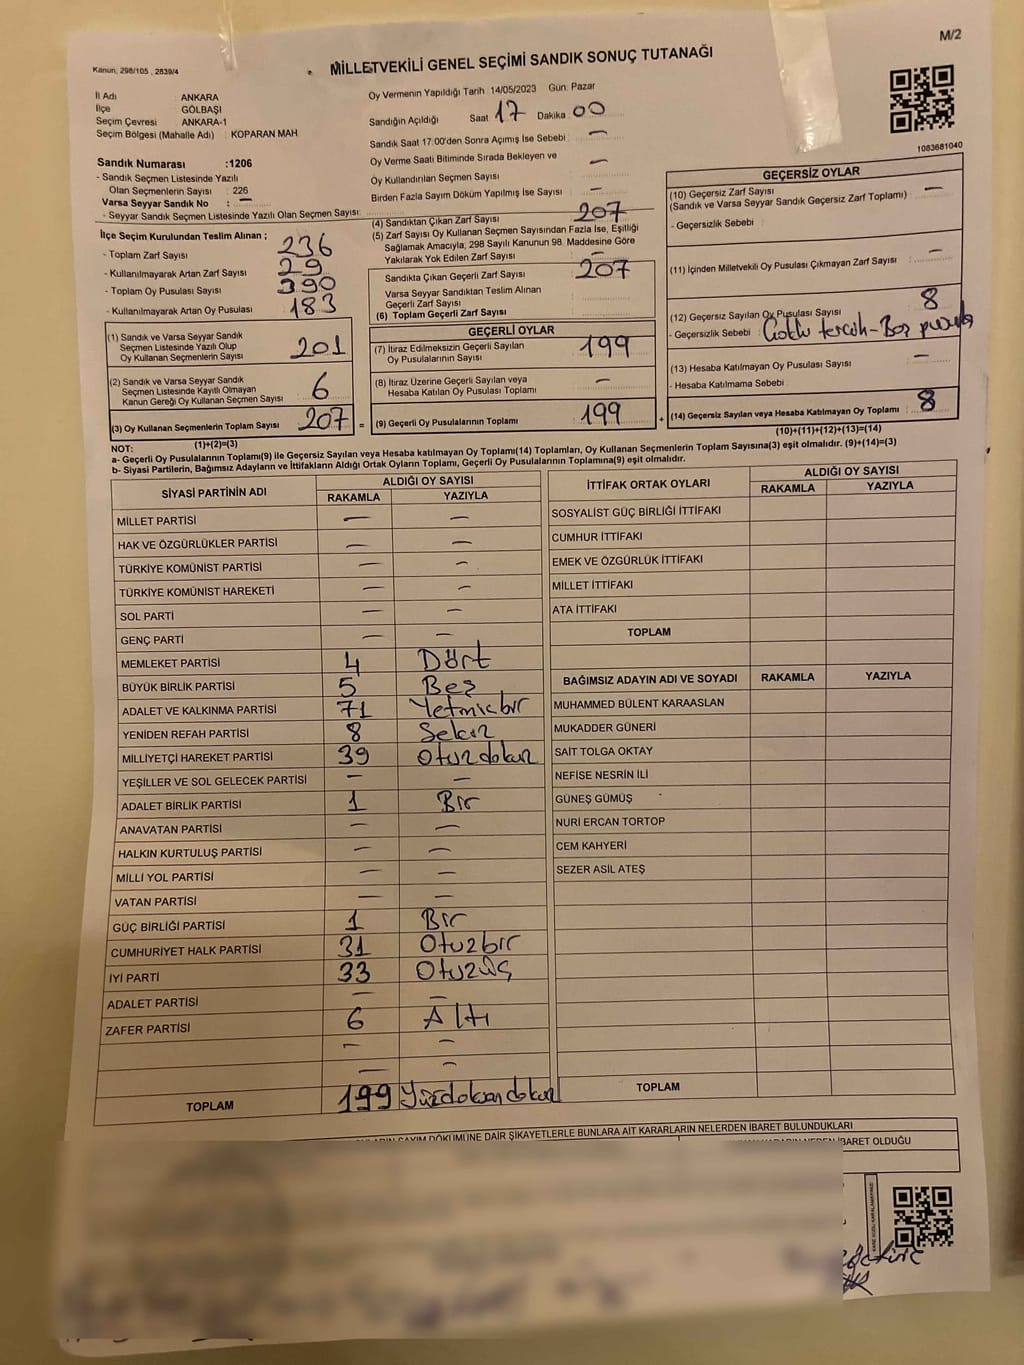 M/2
Kanun; 298/105 , 2839/4
MİLLETVEKİLİ GENEL SEÇİMİ SANDIK SONUÇ TUTANAĞI
İl Adı ANKARA
İlçe GÖLBAŞI
Seçim Çevresi ANKARA-1
Seçim Bölgesi (Mahalle Adı) : KOPARAN MAH
Sandık Numarası :1206
- Sandık Seçmen Listesinde Yazılı
Olan Seçmenlerin Sayısı : 226
Varsa Seyyar Sandık No : —
- Seyyar Sandık Seçmen Listesinde Yazılı Olan Seçmen Sayısı:
Oy Vermenin Yapıldığı Tarih : 14/05/2023 Gün: Pazar
Sandığın Açıldığı Saat 17 Dakika 00
Sandık Saat 17:00'den Sonra Açılmış İse Sebebi : —
Oy Verme Saati Bitiminde Sırada Bekleyen ve —
Oy Kullandırılan Seçmen Sayısı :
Birden Fazla Sayım Döküm Yapılmış İse Sayısı : —
1083681040
İlçe Seçim Kurulundan Teslim Alınan ;
- Toplam Zarf Sayısı : 236
- Kullanılmayarak Artan Zarf Sayısı : 29
- Toplam Oy Pusulası Sayısı : 390
- Kullanılmayarak Artan Oy Pusulası : 183
(1) Sandık ve Varsa Seyyar Sandık
Seçmen Listesinde Yazılı Olup
Oy Kullanan Seçmenlerin Sayısı : 201
(2) Sandık ve Varsa Seyyar Sandık
Seçmen Listesinde Kayıtlı Olmayan
Kanun Gereği Oy Kullanan Seçmen Sayısı : 6
(3) Oy Kullanan Seçmenlerin Toplam Sayısı : 207
(1)+(2)=(3)
(4) Sandıktan Çıkan Zarf Sayısı : 207
(5) Zarf Sayısı Oy Kullanan Seçmen Sayısından Fazla İse, Eşitliği
Sağlamak Amacıyla, 298 Sayılı Kanunun 98. Maddesine Göre
Yakılarak Yok Edilen Zarf Sayısı : —
Sandıkta Çıkan Geçerli Zarf Sayısı : 207
Varsa Seyyar Sandıktan Teslim Alınan
Geçerli Zarf Sayısı :
(6) Toplam Geçerli Zarf Sayısı :
GEÇERLİ OYLAR
(7) İtiraz Edilmeksizin Geçerli Sayılan
Oy Pusulalarının Sayısı : 199
(8) İtiraz Üzerine Geçerli Sayılan veya
Hesaba Katılan Oy Pusulası Toplamı : —
= (9) Geçerli Oy Pusulalarının Toplamı : 199 +
GEÇERSİZ OYLAR
(10) Geçersiz Zarf Sayısı —
(Sandık ve Varsa Seyyar Sandık Geçersiz Zarf Toplamı) :
- Geçersizlik Sebebi :
(11) İçinden Milletvekili Oy Pusulası Çıkmayan Zarf Sayısı : —
(12) Geçersiz Sayılan Oy Pusulası Sayısı : 8
- Geçersizlik Sebebi : tercih-Boş pusula
(13) Hesaba Katılmayan Oy Pusulası Sayısı : —
- Hesaba Katılmama Sebebi :
(14) Geçersiz Sayılan veya Hesaba Katılmayan Oy Toplamı : 8
(10)+(11)+(12)+(13)=(14)
NOT:
a- Geçerli Oy Pusulalarının Toplamı(9) ile Geçersiz Sayılan veya Hesaba Katılmayan Oy Toplamı(14) Toplamları, Oy Kullanan Seçmenlerin Toplam Sayısına(3) eşit olmalıdır. (9)+(14)=(3)
b- Siyasi Partilerin, Bağımsız Adayların ve İttifakların Aldığı Ortak Oyların Toplamı, Geçerli Oy Pusulalarının Toplamına(9) eşit olmalıdır.
SİYASİ PARTİNİN ADI ALDIĞI OY SAYISI
RAKAMLA YAZIYLA
MİLLET PARTİSİ — —
HAK VE ÖZGÜRLÜKLER PARTİSİ — —
TÜRKİYE KOMÜNİST PARTİSİ — —
TÜRKİYE KOMÜNİST HAREKETİ — —
SOL PARTİ — —
GENÇ PARTİ — —
MEMLEKET PARTİSİ 4 Dört
BÜYÜK BİRLİK PARTİSİ 5 Beş
ADALET VE KALKINMA PARTİSİ 71 Yetmişbir
YENİDEN REFAH PARTİSİ 8 Sekiz
MİLLİYETÇİ HAREKET PARTİSİ 39 Otuzdokuz
YEŞİLLER VE SOL GELECEK PARTİSİ — —
ADALET BİRLİK PARTİSİ 1 Bir
ANAVATAN PARTİSİ — —
HALKIN KURTULUŞ PARTİSİ — —
MİLLİ YOL PARTİSİ — —
VATAN PARTİSİ — —
GÜÇ BİRLİĞİ PARTİSİ 1 Bir
CUMHURİYET HALK PARTİSİ 31 Otuzbir
İYİ PARTİ 33 Otuzüç
ADALET PARTİSİ — —
ZAFER PARTİSİ 6 Altı
— —
— —
TOPLAM 199 Yüzdoksandokuz
İTTİFAK ORTAK OYLARI ALDIĞI OY SAYISI
RAKAMLA YAZIYLA
SOSYALİST GÜÇ BİRLİĞİ İTTİFAKI
CUMHUR İTTİFAKI
EMEK VE ÖZGÜRLÜK İTTİFAKI
MİLLET İTTİFAKI
ATA İTTİFAKI
TOPLAM
BAĞIMSIZ ADAYIN ADI VE SOYADI RAKAMLA YAZIYLA
MUHAMMED BÜLENT KARAASLAN
MUKADDER GÜNERİ
SAİT TOLGA OKTAY
NEFİSE NESRİN İLİ
GÜNEŞ GÜMÜŞ
NURİ ERCAN TORTOP
CEM KAHYERİ
SEZER ASİL ATEŞ
TOPLAM
SAYIM DÖKÜMÜNE DAİR ŞİKAYETLERLE BUNLARA AİT KARARLARIN NELERDEN İBARET BULUNDUKLARI
İBARET OLDUĞU